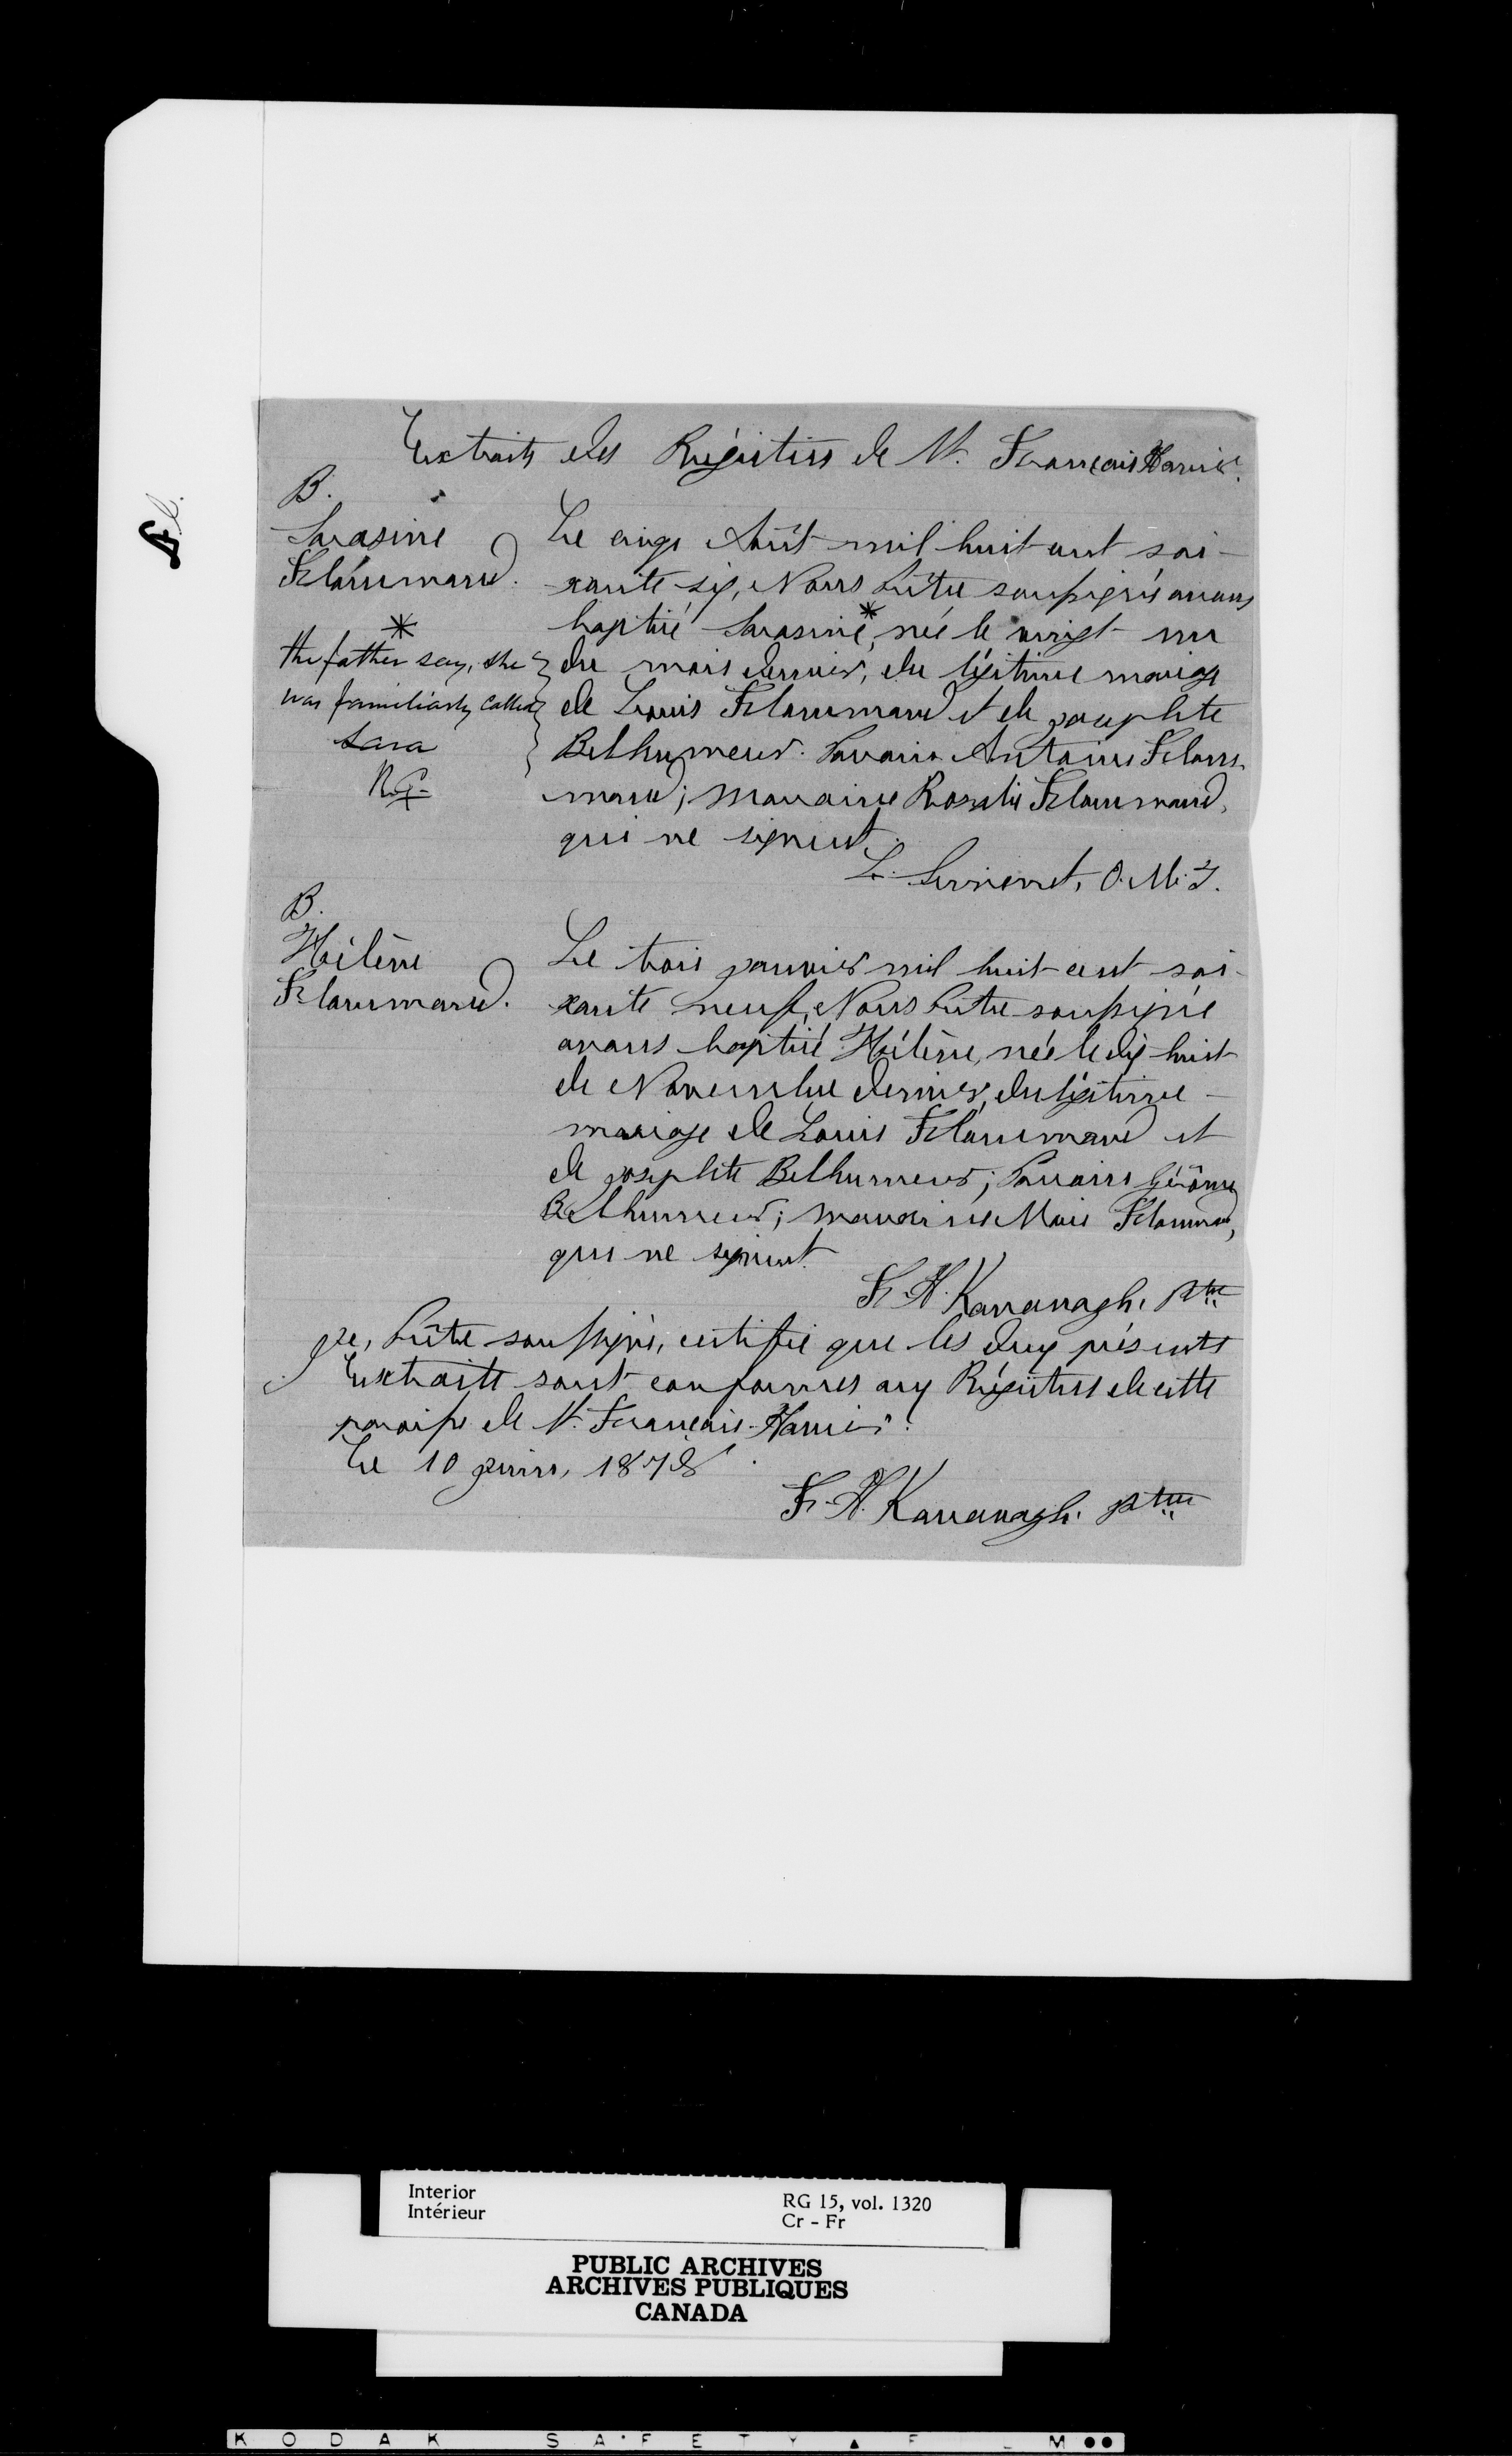 Extraits des Régistres de St. François Xavier.
B.
Sarasine
Flammand.
*
the father say, she
was familiarly called
Sara
R.G.
Le cinq Août mil huit cent soi-
xante six, Nous Prêtre soussigné avons
baptisé Sarasine*, née le vingt un
du mois dernier, du légitime mariage
de Louis Flammand et de Josephte
Belhumeur. Parrain Antoine Flam-
mand; Marraine Rosalie Flammand,
qui ne signent.
L. O.M.I.
B.
Hélène
Flammand.
Le trois janvier mil huit cent soi-
xante neuf, Nous Prêtre soussigné
avons baptisé Hélène, née le dix huit
de Novembre dernier, du légitime
mariage de Louis Flammand et
de Josephte Belhumeur; Parrain Gérôme
Belhumeur; marraine Marie Flammand,
qui ne signent.
F. X. Kavanagh. Ptre
Je, Prêtre soussigné, certifie que les deux présents
Extraits sont conformes aux Régistres de cette
paroisse de St. François-Xavier.
Ce 10 juin, 1878.
F. X. Kavanagh. Ptre
Interior
Intérieur
RG 15, vol. 1320
Cr - Fr
PUBLIC ARCHIVES
ARCHIVES PUBLIQUES
CANADA
KODAK SAFETY